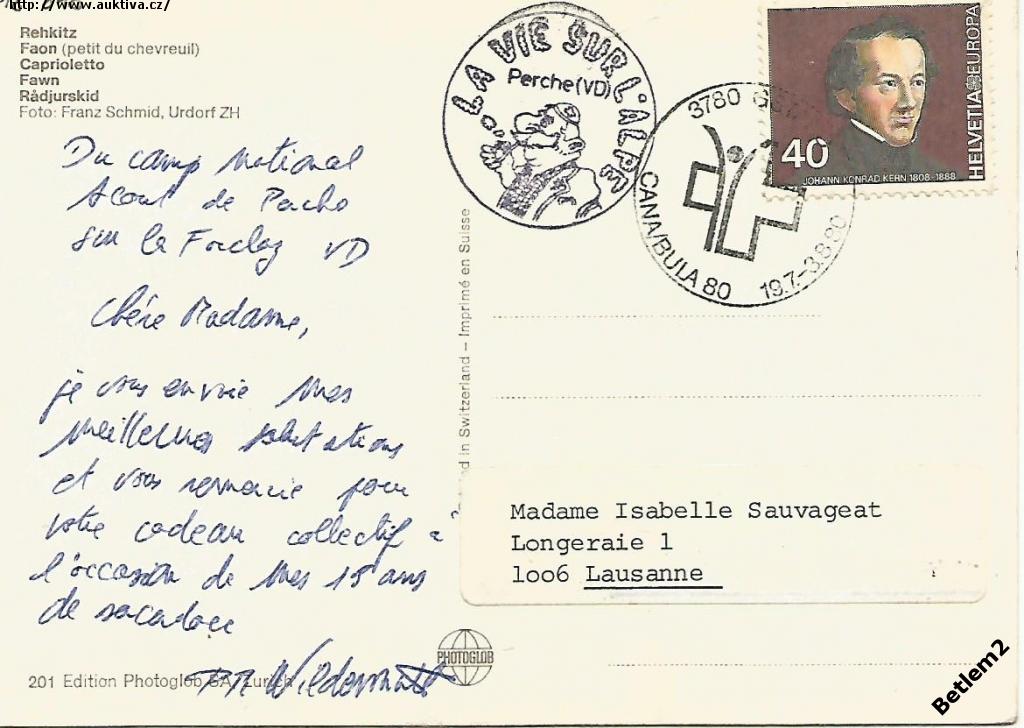 http://www.auktiva.cz/
Rehkitz
Faon (petit du chevreuil)
Caprioletto
Fawn
Rådjurskid
Foto: Franz Schmid, Urdorf ZH
Du camp National
Scout de Perche
sur la Forclaz VD
Chère Madame,
je vous envoie mes
meilleures salutations
et vous remercie pour
votre cadeau collectif à
l'occasion de mes 15 ans
de
Wildermuth
201 Edition Photoglob SA, Zürich
PHOTOGLOB
Printed in Switzerland – Imprimé en Suisse
LA VIE SUR L'ALPE
Perche (VD)
3780
CANA/BULA 80 19.7.-3.8.80
40
JOHANN KONRAD KERN 1808-1888
HELVETIA EUROPA
Madame Isabelle Sauvageat
Longeraie 1
1oo6 Lausanne
Betlem2